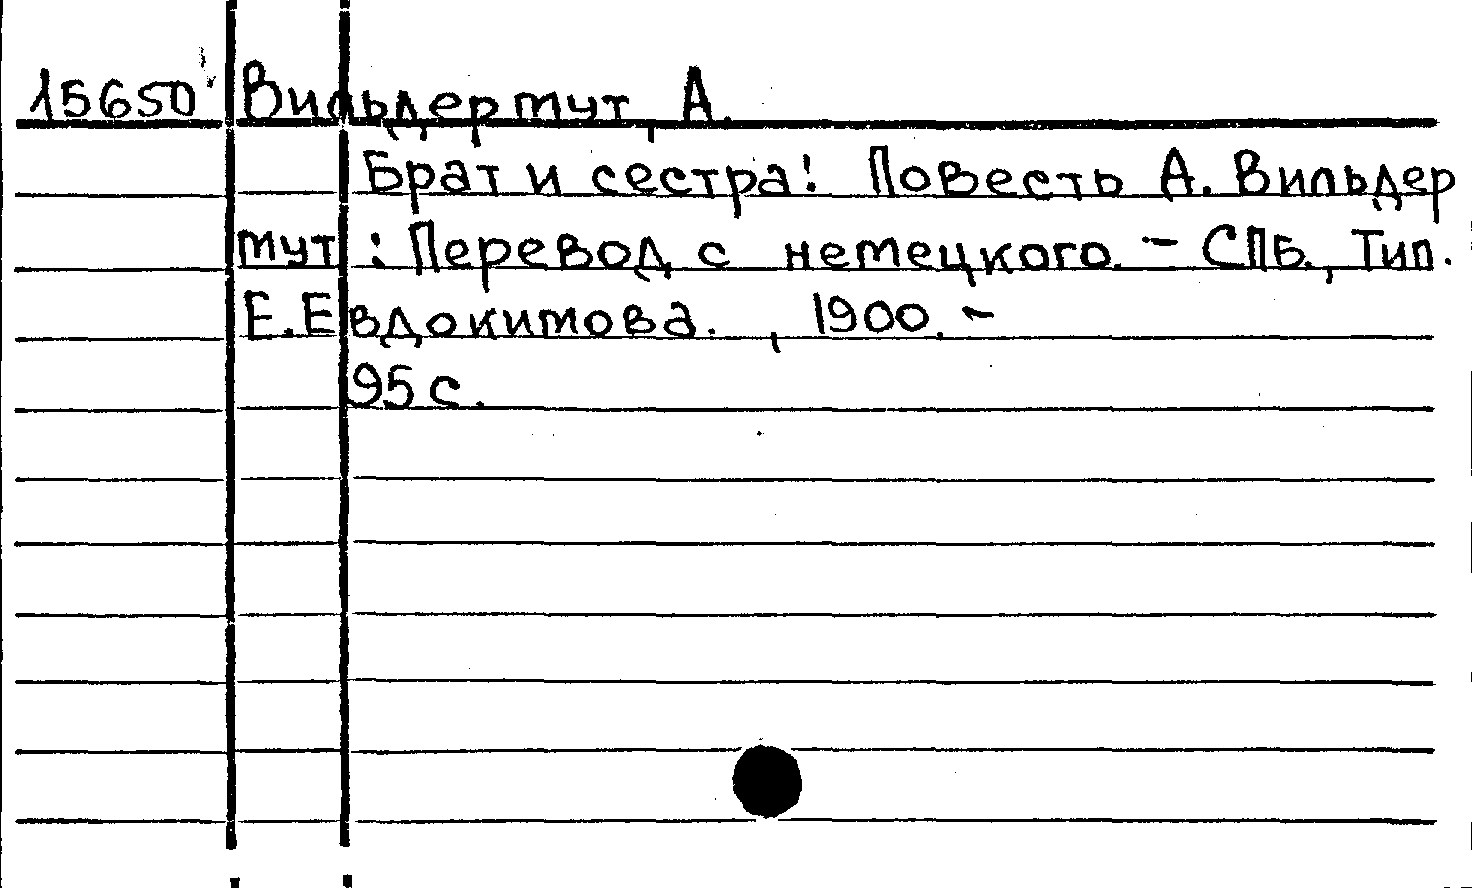 15650 Вильдермут, А.
Брат и сестра! Повесть А. Вильдер
мут : Перевод с немецкого. – СПБ., Тип.
Е.Евдокимова. , 1900. –
95 с.